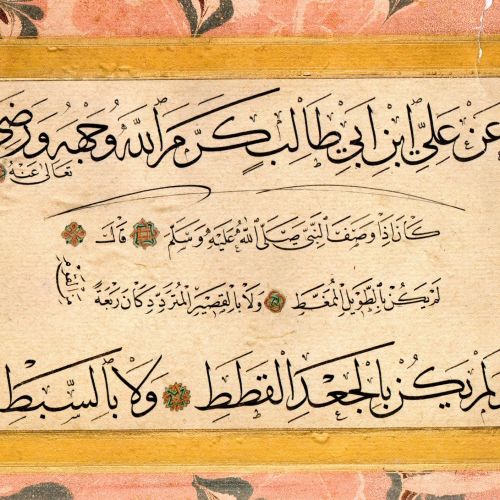 عَنْ عَلِيِّ ابْنِ اَبِي طَالِبٍ كَرَّمَ اللّٰهُ وَجْهَهُ وَرَضِيَ
تَعَالٰى عَنْهُ
كَانَ اِذَا وَصَفَ النَّبِيَّ صَلَّى اللّٰهُ عَلَيْهِ وَسَلَّمَ قَالَ
لَمْ يَكُنْ بِالطَّوِيلِ الْمُمَغَّطِ وَلَا بِالْقَصِيرِ الْمُتَرَدِّدِ كَانَ رَبْعَةً
مِنَ الْقَوْمِ
وَلَمْ يَكُنْ بِالْجَعْدِ الْقَطَطِ وَلَا بِالسَّبِطِ